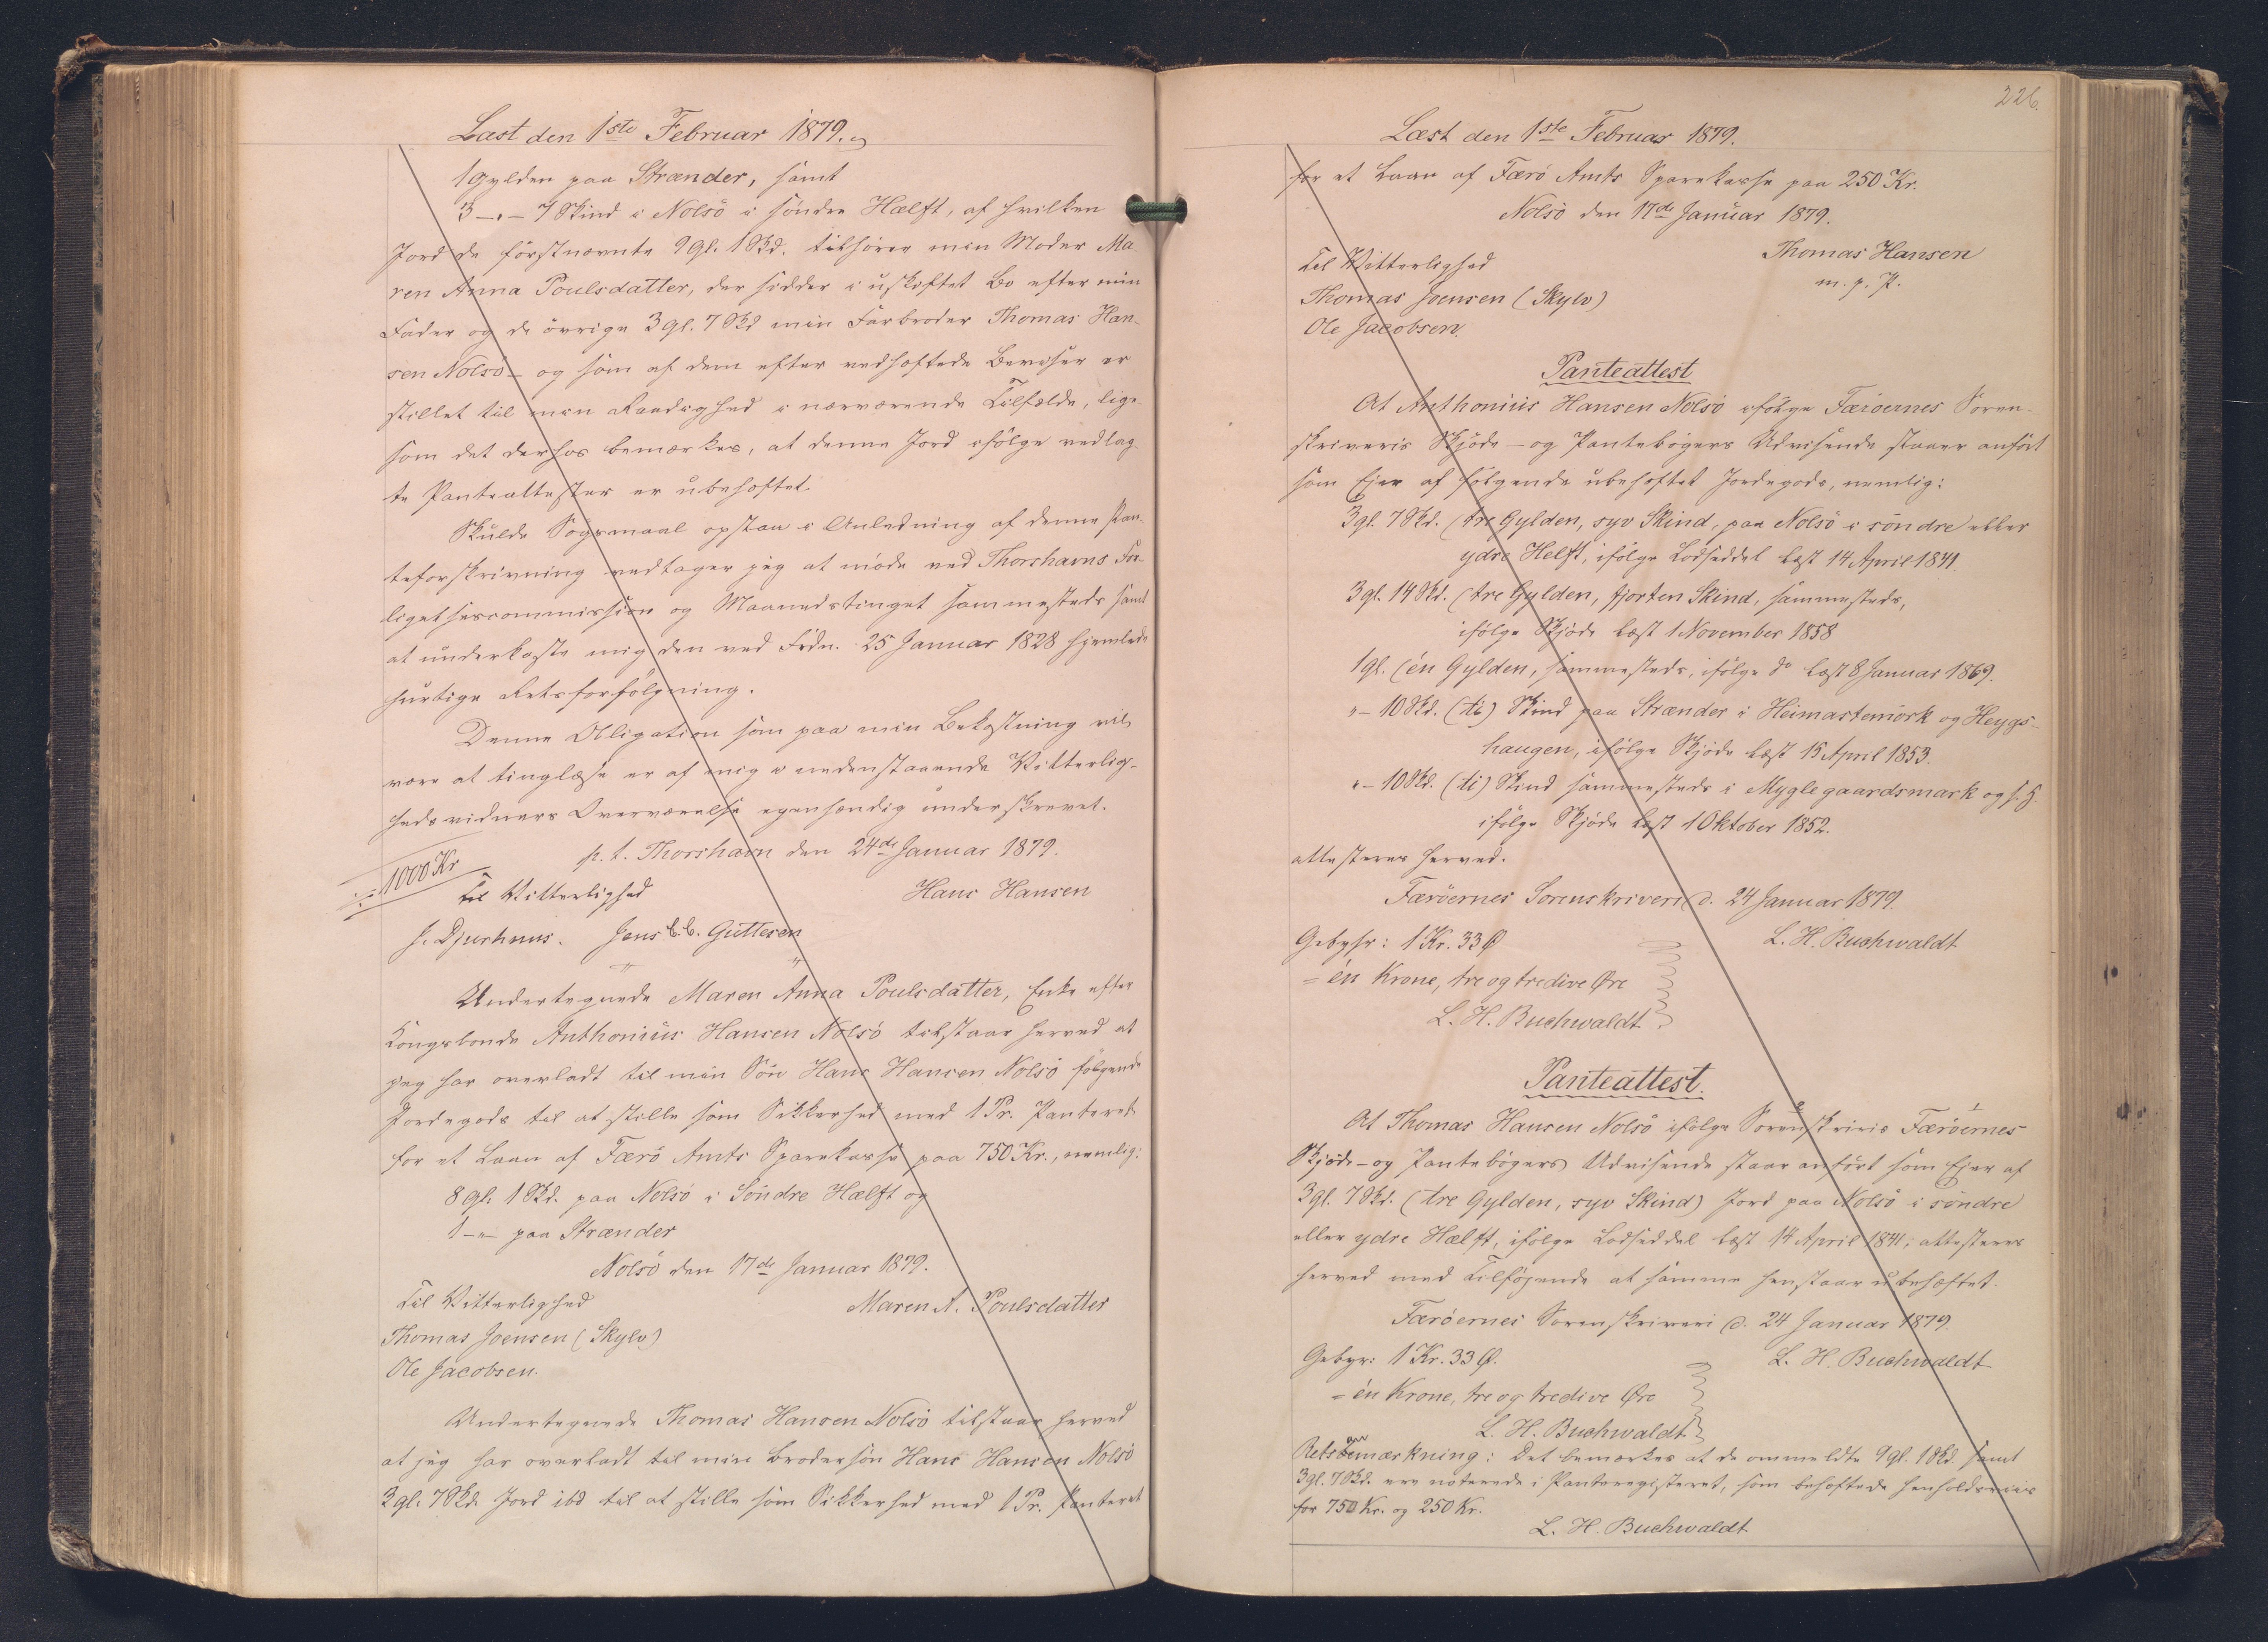 Læst den 1ste Februar 1879.
1 Gylden paa Strænder, samt
3 – " – 7 Skind i Nolsö i söndre Hælft, af hvilken
Jord de förstnævnte 9 gl. 1 Skd. tilhører min Moder Ma-
ren Anna Poulsdatter, der sidder i uskiftet Bo efter min
Fader og de övrige 3 gl. 7 Skd min Farbroder Thomas Han-
sen Nolsö – og som af dem efter vedhæftede Beviser er
stillet til min Raadighed i nærværende Tilfælde, lige-
som det derhos bemærkes, at denne Jord ifölge vedlag-
te Panteattester er ubehæftet.
Skulde Sögsmaal opstaa i Anledning af denne Pan-
teforskrivning vedtager jeg at möde ved Thorshavns For-
ligelsescommission og Maanedstinget sammesteds samt
at underkaste mig den ved Frdn. 25 Januar 1828 hjemlede
hurtige Retsforfölgning.
Denne Obligation som paa min Bekostning vil
være at tinglæse er af mig i nedenstaaende Vitterlig-
hedsvidners Overværelse egenhændig underskrevet.
p. t. Thorshavn den 24de Januar 1879.
1000 Kr
Til Vitterlighed Hans Hansen
J. Djurhuus. Jens C. C. Guttesen
Undertegnede Maren Anna Poulsdatter, Enke efter
Kongsbonde Anthonius Hansen Nolsö tilstaar herved at
jeg har overladt til min Sön Hans Hansen Nolsö fölgende
Jordegods til at stille som Sikkerhed med 1 Pr. Panteret
for et Laan af Færö Amts Sparekasse paa 750 Kr., nemlig:
8 gl. 1 Skd. paa Nolsö i Söndre Hælft og
1 – " – paa Strænder
Nolsö den 17de Januar 1879.
Til Vitterlighed Maren A. Poulsdatter
Thomas Joensen (Skylv)
Ole Jacobsen.
Undertegnede Thomas Hansen Nolsö tilstaar herved
at jeg har overladt til min Brodersön Hans Hansen Nolsö
3 gl. 7 Skd. Jord ibd til at stille som Sikkerhed med 1 Pr. Panteret
226.
Læst den 1ste Februar 1879.
for et Laan af Færö Amts Sparekasse paa 250 Kr.
Nolsö den 17de Januar 1879.
Til Vitterlighed Thomas Hansen
Thomas Joensen (Skylv) m. p. P.
Ole Jacobsen.
Panteattest
At Anthonius Hansen Nolsö ifölge Færöernes Soren-
skriveris Skjöde- og Pantebögers Udvisende staaer anfört
som Ejer af fölgende ubehæftet Jordegods, nemlig:
3 gl. 7 Skd. (tre Gylden, syv Skind, paa Nolsö i söndre eller
ydre Helft, ifölge Lodseddel læst 14 April 1841.
3 gl. 14 Skd. (tre Gylden, fjorten Skind, sammesteds,
ifölge Skjöde læst 1 November 1858
1 gl. (én Gylden, sammesteds, ifölge do læst 8 Januar 1869.
" – 10 Skd. (ti) Skind paa Strænder i Heimastemörk og Heygs-
haugen, ifölge Skjöde læst 15 April 1853.
" – 10 Skd. (ti) Skind sammesteds i Myglegaardsmark og s. H.
ifölge Skjöde læst 1 Oktober 1852.
attesteres herved.
Færöernes Sorenskriveri d. 24 Januar 1879.
Gebyhr: 1 Kr. 33 Ø L. H. Buchwaldt
= én Krone, tre og tredive Øre
L. H. Buchwaldt
Panteattest.
At Thomas Hansen Nolsö ifölge Sorenskriveris Færöernes
Skjöde- og Pantebögers Udvisende staar anfört som Ejer af
3 gl. 7 Skd. (tre Gylden, syv Skind) Jord paa Nolsö i söndre
eller ydre Hælft, ifölge Lodseddel læst 14 April 1841; attesteres
herved med Tilföjende at samme henstaar ubehæftet.
Færöernes Sorenskriveri d. 24 Januar 1879.
Gebyr: 1 Kr. 33 Ø. L. H. Buchwaldt
= én Krone, tre og tredive Øre
L. H. Buchwaldt
Retsanmærkning: Det bemærkes at de ommeldte 9 gl. 1 Skd. samt
3 gl. 7 Skd. ere noterede i Panteregisteret, som behæftede henholdsviis
for 750 Kr. og 250 Kr.
L. H. Buchwaldt